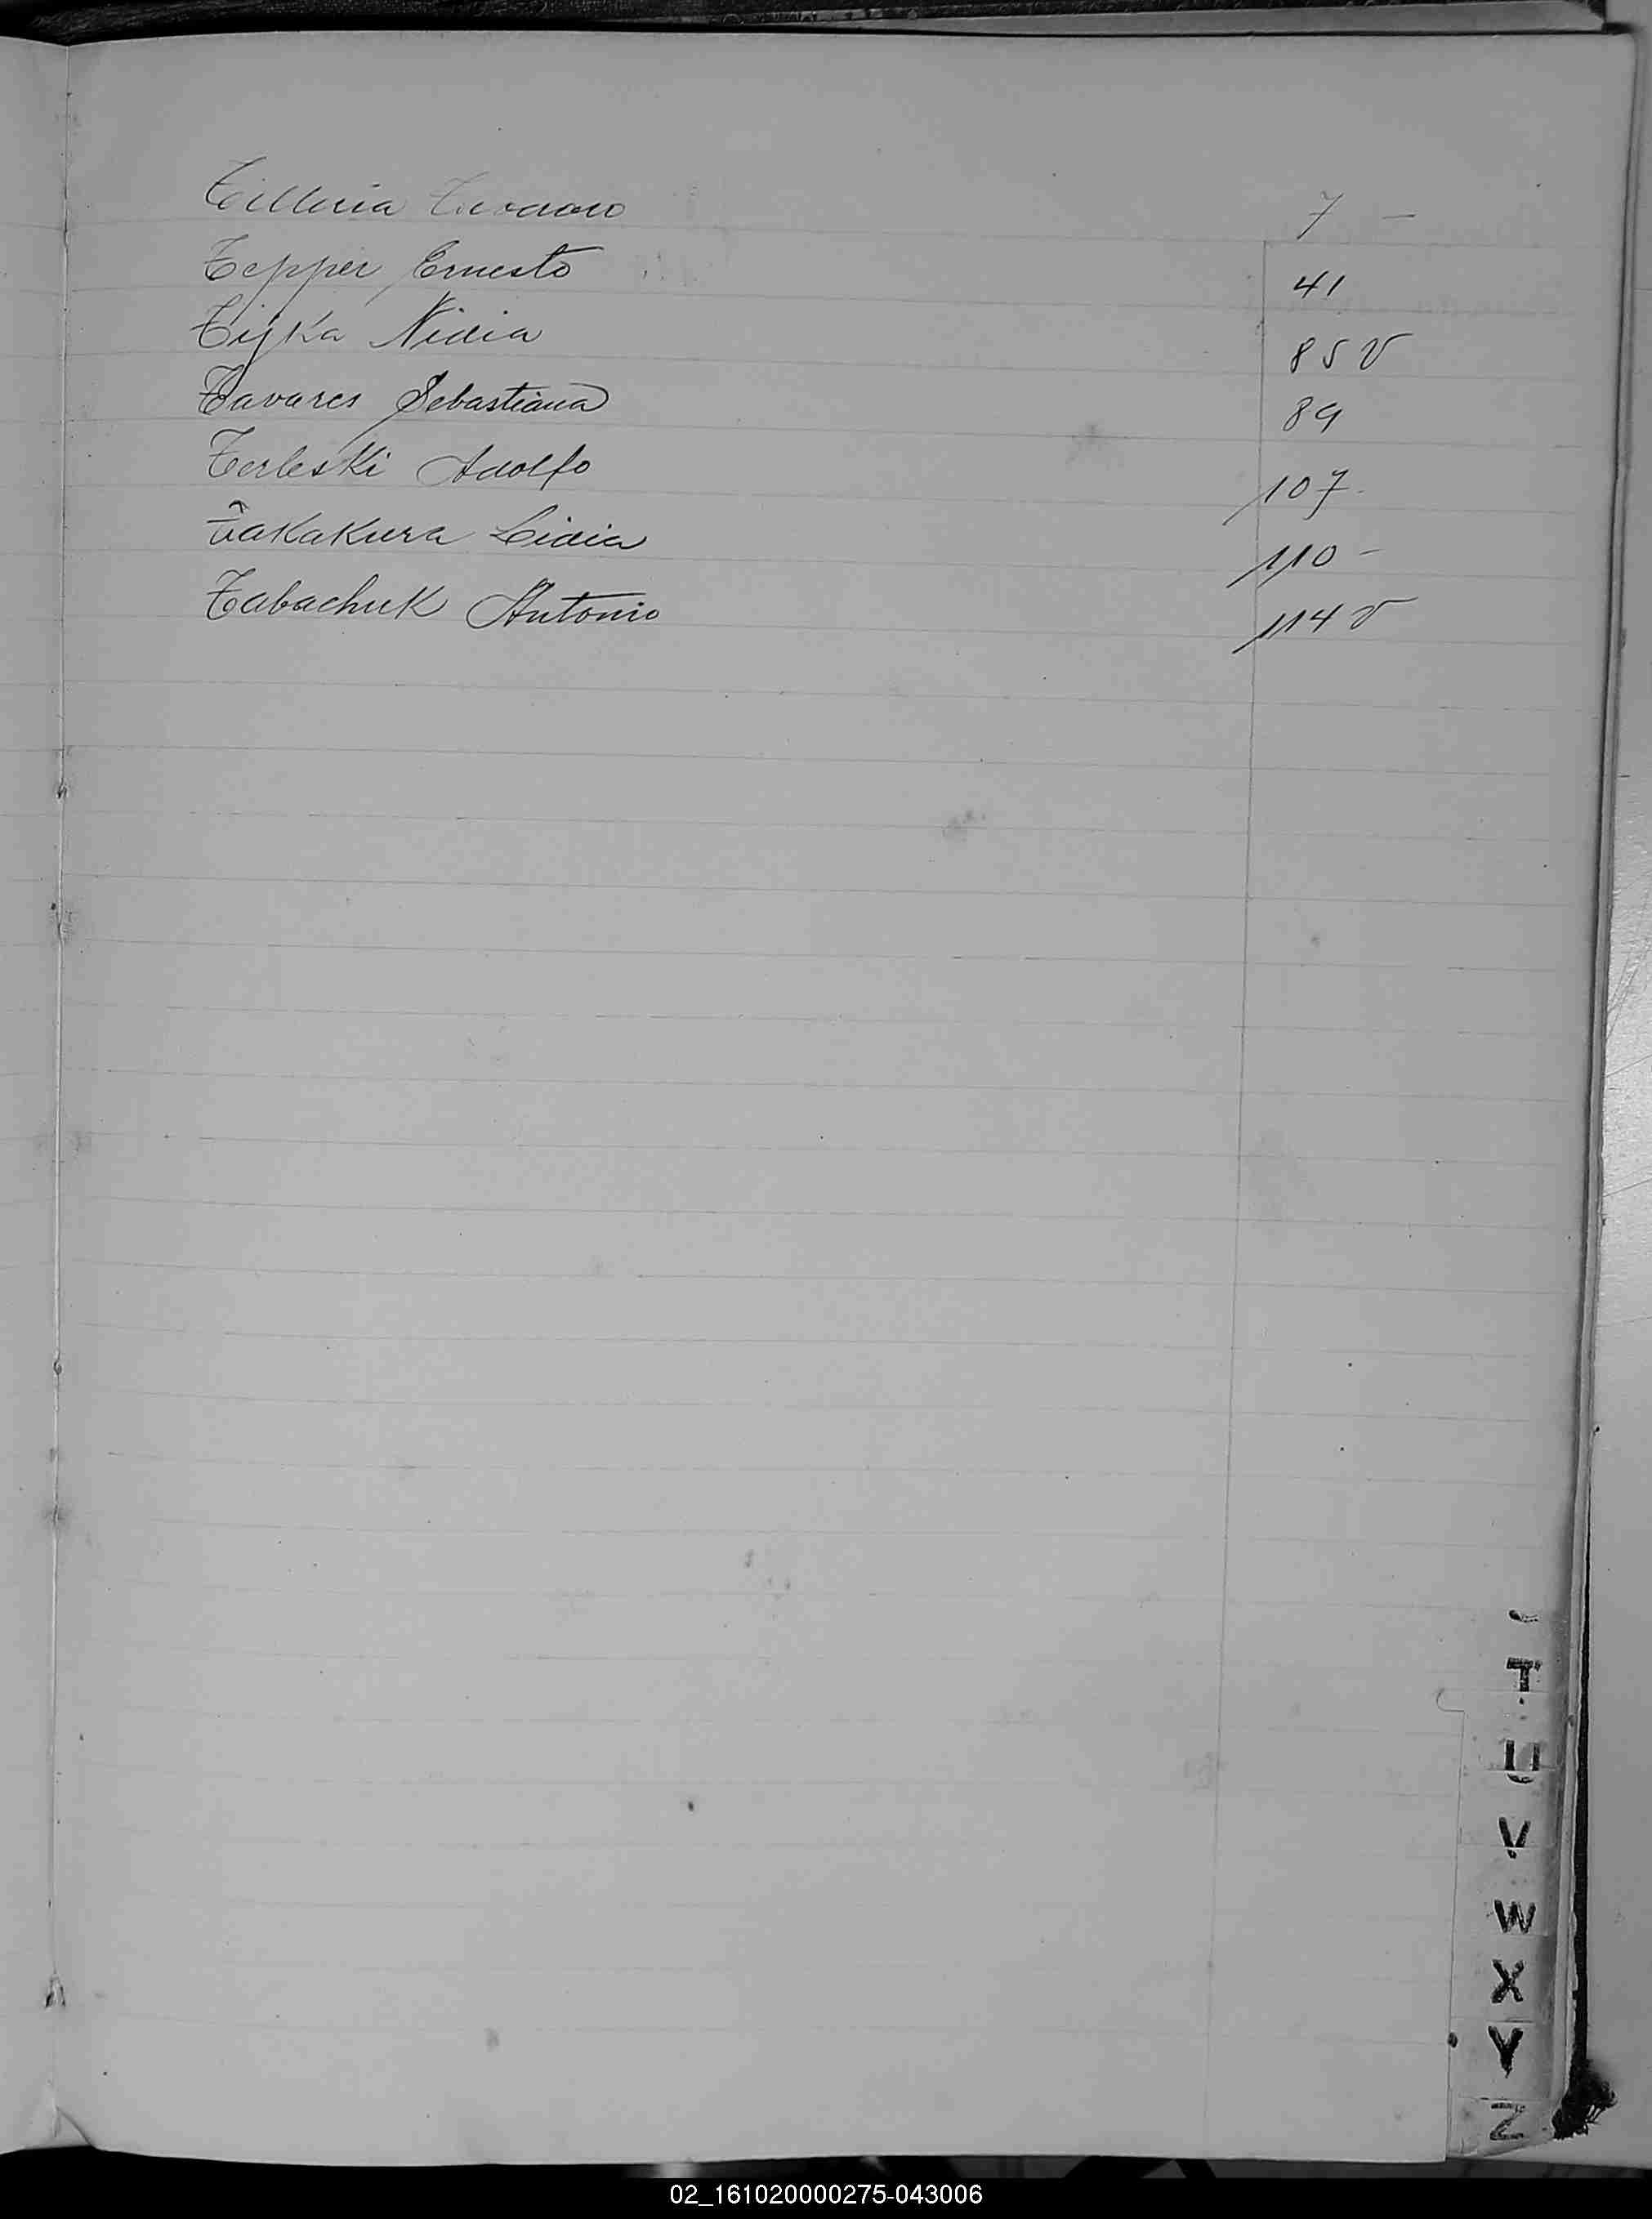 Tilleria Teodoro 7 -
Tepper Ernesto 41
Tijka Nidia 85 V
Tavares Sebastiana 89
Terleski Adolfo 107
Takakura Lidia 110 -
Tabachuk Antonio 114 V
T
U
V
W
X
Y
Z
02_161020000275-043006